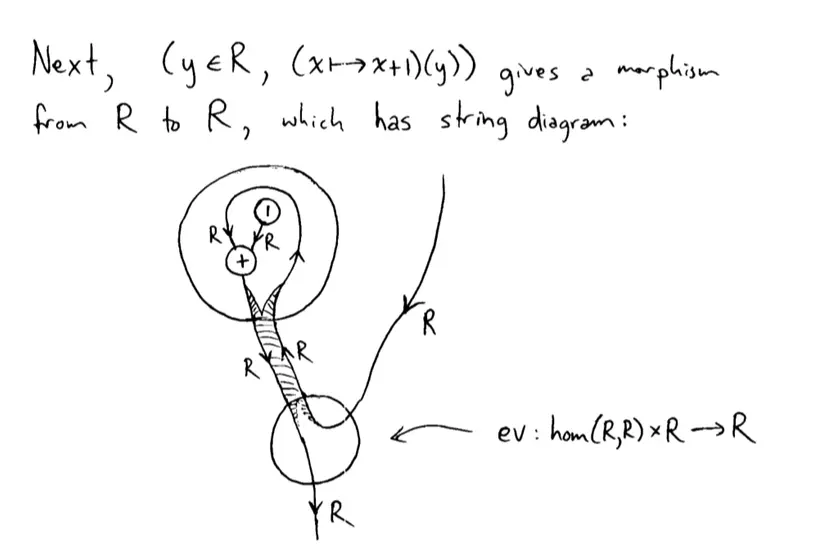 Next, (y ∈ R, (x ↦ x+1)(y)) gives a morphism
from R to R, which has string diagram:
1
R R
+
R
R R
ev : hom(R,R) × R → R
R